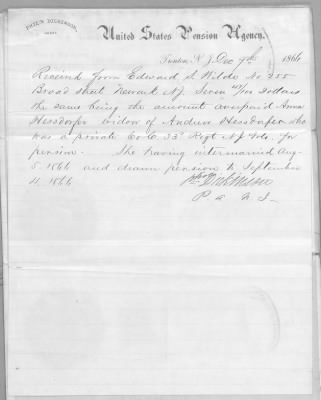 PHIL'N DICKINSON,
AGENT.
United States Pension Agency,
Trenton, N.J. Dec 7th 1866
Received from Edward S Wilde No 255
Broad street Newark NJ. Seven /100 Dollars
the same being the amount overpaid Anna
Hessdorfer widow of Andrew Hessdorfer who
was a private Co. C. 33d Regt NJ Vols. for
pension. She having intermarried Aug
5 1866 and drawn pension to September
4, 1866
Dickinson
P A N J